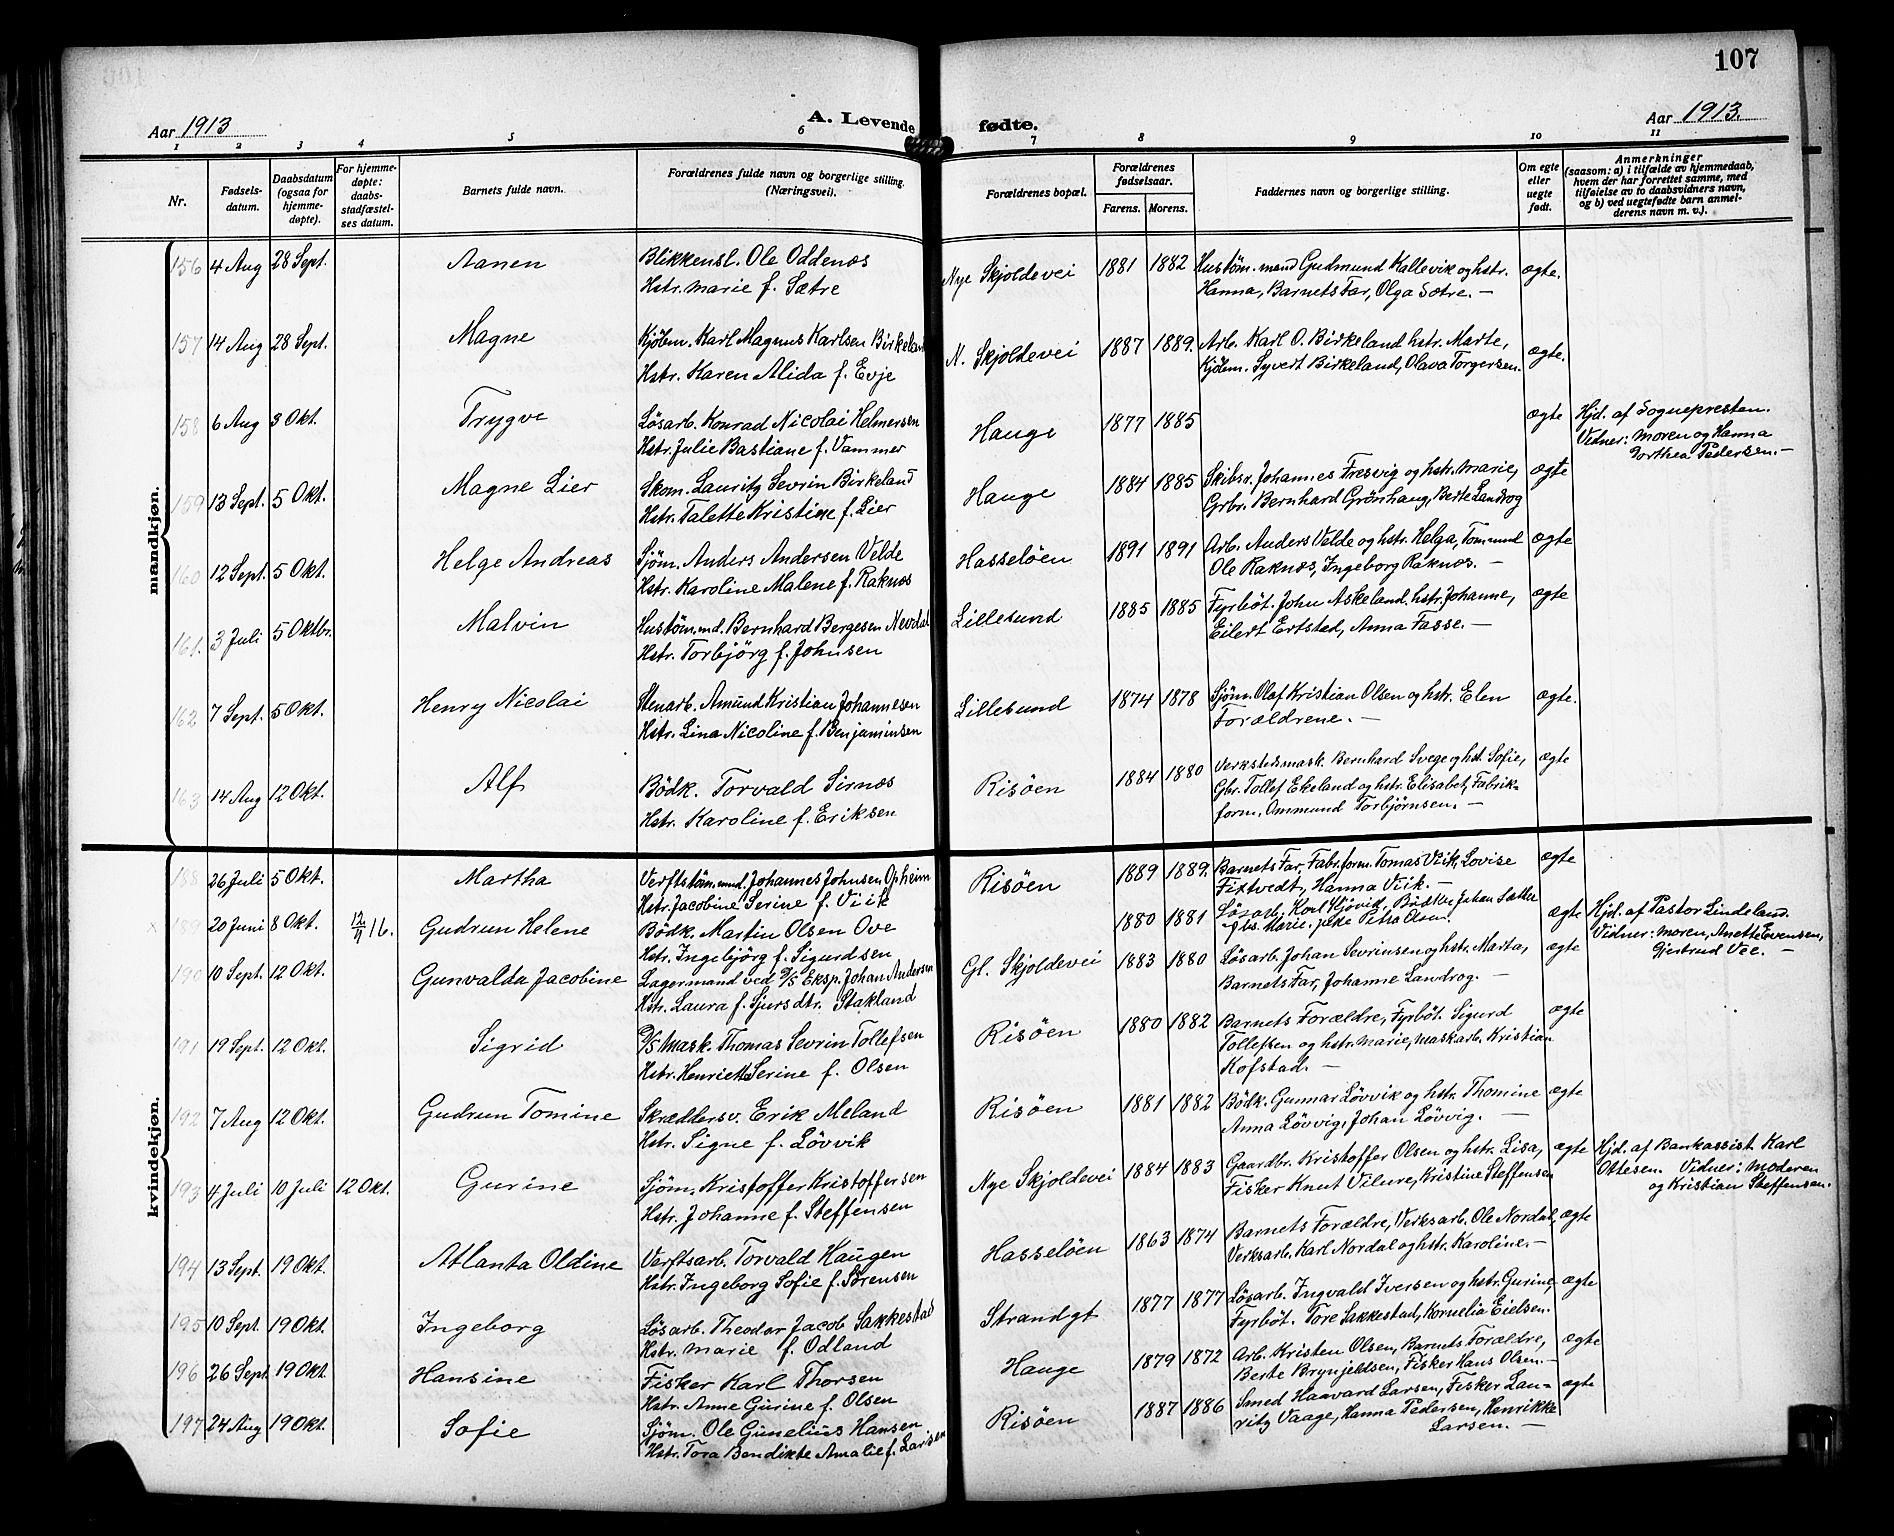 107
Aar 1913
A. Levende fødte.
Aar 1913.
1 2 3 4 5 6 7 8 9 10 11
Nr.
Fødsels-
datum.
Daabsdatum
(ogsaa for
hjemme-
døpte).
For hjemme-
døpte:
daabs-
stadfæstel-
ses datum.
Barnets fulde navn.
Forældrenes fulde navn og borgerlige stilling.
(Næringsvei).
Forældrenes bopæl.
Forældrenes
fødselsaar.
Farens. Morens.
Faddernes navn og borgerlige stilling.
Om egte
eller
uegte
født.
Anmerkninger
(saasom: a) i tilfælde av hjemmedaab,
hvem der har forrettet samme, med
tilføielse av to daabsvidners navn,
og b) ved uegtefødte barn anmel-
derens navn m. v.).
mandkjøn.
156 4 Aug 28 Sept. Aanen Blikkensl. Ole Oddenæs Nye Skjoldevei 1881 1882 Hustøm. mand Gudmund Kallevik og hstr. ægte.
Hstr. Marie f. Sætre Hanna, Barnets Far, Olga Sætre. —
157 14 Aug 28 Sept. Magne Kjøbm. Karl Magnus Karlsen Birkeland N. Skjoldevei 1887 1889. Arb. Karl O. Birkeland hstr. Marte, ægte.
Hstr. Karen Alida f. Evje Kjøbm. Syvert Birkeland, Olava Torgersen.
158 6 Aug 3 Okt. Trygve Løsarb. Konrad Nicolai Helmersen Hauge 1877 1885 ægte Hjd. af Sognepresten.
Hstr. Julie Bastiane f. Vammer Vidner: Moren og Hanna
Dorthea Pedersen. —
159 13 Sept. 5 Okt. Magne Lier Skom. Lauritz Sevrin Birkeland Hauge 1884 1885 Skibsr. Johannes Fresvig og hstr. Marie, ægte
Hstr. Talette Kristine f. Lier Grbr. Bernhard Grönhaug, Berte Landrog
160 12 Sept. 5 Okt. Helge Andreas Sjøm. Anders Andersen Velde Hasseløen 1891 1891 Arb. Anders Velde og hstr. Helga, Tom.mnd ægte
Hstr. Karoline Malene f. Raknæs Ole Raknæs, Ingeborg Raknæs. —
161. 3 Juli 5 Oktbr. Malvin Hustøm.md. Bernhard Bergesen Nevdal Lillesund 1885 1885 Fyrbøt. John Askeland, hstr. Johanne, ægte
Hstr. Torbjörg f. Johnsen Eilert Ertstad, Anna Fasse. —
162 7 Sept. 5 Okt. Henry Nicolai Stenarb. Amund Kristian Johannesen Lillesund 1874 1878 Sjøm. Olaf Kristian Olsen og hstr. Elen ægte.
Hstr. Lina Nicoline f. Benjaminsen Forældrene. —
163 14 Aug 12 Okt. Alf Bödk. Torvald Sirnæs Risöen 1884 1880 Verkstedsmask. Bernhard Svege og hst. Sofie, ægte
Hstr. Karoline f. Eriksen Gbr. Tollef Ekeland og hstr. Elisabet, Fabrik-
form. Ommund Torbjørnsen. —
kvindekjøn.
188 26 Juli 5 Okt. Martha Verftstøm.md. Johannes Johnsen Opheim Risöen 1889 1889. Barnets Far, Fabr.form. Tomas Viik, Lovise ægte
Hstr. Jacobine Serine f. Viik Fixtvedt, Hanna Viik. —
189 20 Juni 8 Okt. 12/11 16. Gudrun Helene Bödk. Martin Olsen Ove 1880 1881 Løsarb. Karl Hjövik, Bödker Johan Sætter ægte Hjd. af Pastor Lindeland.
Hstr. Ingebjörg f. Sigurdsen Petra Olsen. Vidner: moren, Anette Evensen,
Gjertrud Vee. —
190 10 Sept. 12 Okt. Gunvalda Jacobine Lagermand ved D/S Eksp. Johan Andersen Gl. Skjoldevei 1883 1880 Løsarb. Johan Sevrinsen og hstr. Marta, ægte
Hstr. Laura f. Sjursdtr. Stakland Barnets Far, Johanne Landrog. —
191 19 Sept. 12 Okt. Sigrid D/S Mask. Thomas Sevrin Tollefsen Risöen 1880 1882 Barnets Forældre, Fyrbøt. Sigurd ægte
Hstr. Henriette Serine f. Olsen Tollefsen og hstr. Marie, maskarb. Kristian
Kofstad. —
192 7 Aug 12 Okt. Gudrun Tomine Skrædersv. Erik Meland Risöen 1881 1882 Bödk. Gunnar Lövvik og hstr. Thomine ægte
Hstr. Signe f. Lövvik Anna Lövvig, Johan Lövvig. —
193 4 Juli 10 Juli 12 Okt. Gurine Sjöm. Kristoffer Kristoffersen Nye Skjoldevei 1884 1883 Gaardbr. Kristoffer Olsen og hstr. Lisa, ægte Hjd. af Bankassist. Karl
Hstr. Johanne f. Steffensen Fisker Knut Vilure, Kristine Steffensen Ottesen. Vidner: moderen
og Kristian Steffensen.
194 13 Sept. 19 Okt. Atlanta Oldine Verftsarb. Torvald Haugen Hasselöen 1863 1874 Barnets Forældre, Verksarb. Ole Nordal, ægte
Hstr. Ingeborg Sofie f. Sörensen Verksarb. Karl Nordal og hstr. Karoline. —
195 10 Sept. 19 Okt. Ingeborg Løsarb. Theodor Jacob Sakkestad Strandgt 1877 1877 Løsarb. Ingvald Iversen og hstr. Gurine, ægte
Hstr. Marie f. Odland Fyrbøt. Tore Sakkestad, Kornelia Eielsen.
196 26 Sept 19 Okt. Hansine Fisker Karl Thorsen Hauge 1879 1872 Arb. Kristen Olsen, Barnets Forældre, ægte
Hstr. Anne Gurine f. Olsen Berte Brynjeldsen, Fisker Hans Olsen. —
197 24 Aug 19 Okt. Sofie Sjøm. Ole Gunelius Hansen Risöen 1887 1886 Smed Haavard Larsen, Fisker Lau- ægte
Hstr. Tora Bendikte Amalie f. Larsen ritz Vaage, Hanna Pedersen, Henrikke
Larsen. —